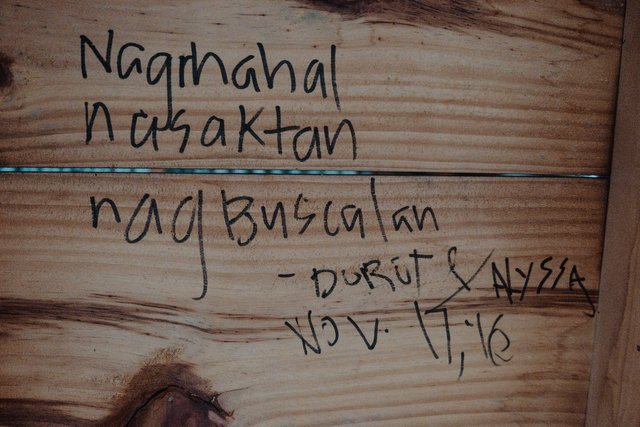 Nagmahal
nasaktan
nagBuscalan
- DOROT & ALYSSA
NOV. 17, 16